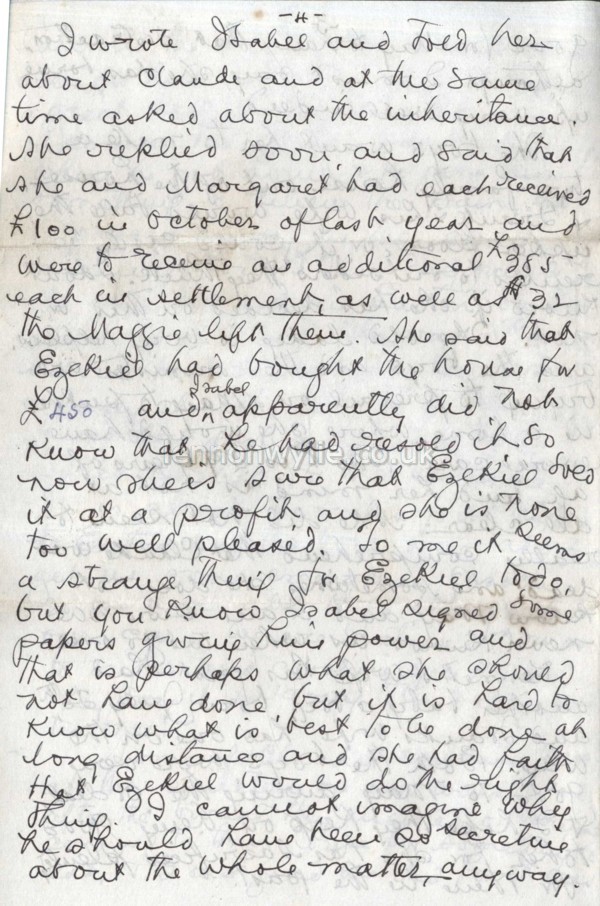 -4-
I wrote Isabel and told her
about Claude and at the same
time asked about the inheritance.
She replied soon, and said that
she and Margaret had each received
£100 in October of last year and
were to receive an additional £385
each in settlement, as well as 32
the Maggie left them. She said that
Ezekiel had bought the house for
£450 and Isabel apparently did not
know that he had resold it so
now she is sure that Ezekiel sold
it at a profit and she is none
too well pleased. To me it seems
a strange thing for Ezekiel to do,
but you know Isabel signed some
papers giving him power and
that is perhaps what she should
not have done but it is hard to
know what is best to be done at
long distance and she had faith
that Ezekiel would do the right
thing. I cannot imagine why
he should have been so secretive
about the whole matter, anyway.
lennonwylie.co.uk